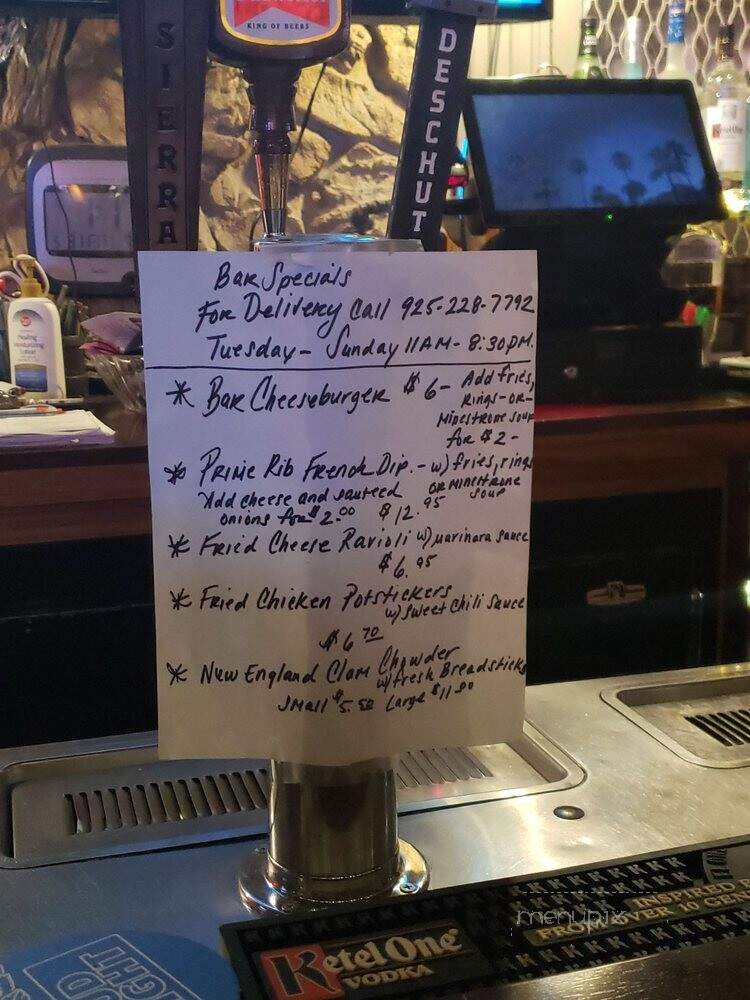 KING OF BEERS
SIERRA
DESCHUT
Bar Specials
For Delivery Call 925-228-7792
Tuesday - Sunday 11AM - 8:30PM.
* Bar Cheeseburger $6- Add fries,
Rings - OR -
Minestrone soup
for $2-
* Prime Rib French Dip. - w/ fries, rings
OR Minestrone
soup
Add cheese and sauteed
onions for $2.00 $12.95
* Fried Cheese Ravioli w/ Marinara sauce
$6.95
* Fried Chicken Potstickers
w/ sweet chili sauce
$6 70
* New England Clam Chowder
w/ fresh Breadsticks
Small $5.50 Large $11.00
Ketel One
VODKA
INSPIRED
FROM OVER 10 GEN
menupix